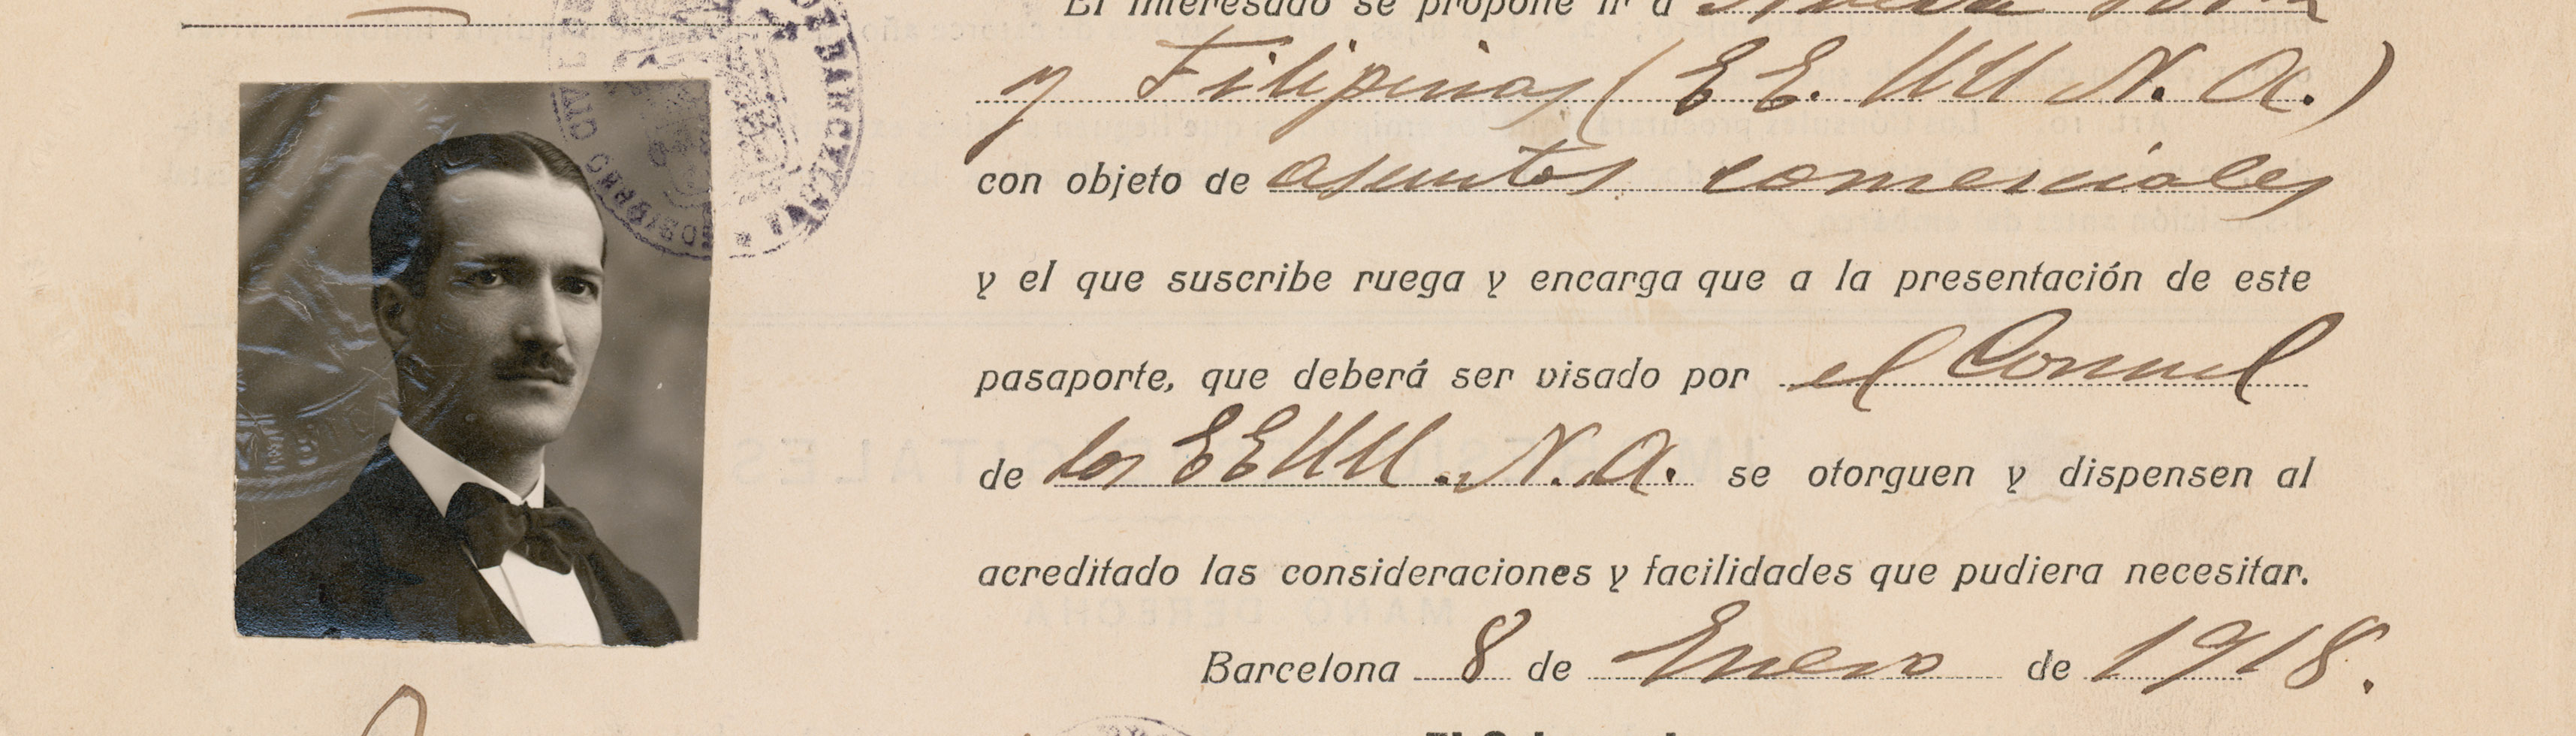 El interesado se propone ir a Nueva York
y Filipinas (EE. UU N. A.)
con objeto de asuntos comerciales
y el que suscribe ruega y encarga que a la presentación de este
pasaporte, que deberá ser visado por el Consul
de los EEUU. N. A. se otorguen y dispensen al
acreditado las consideraciones y facilidades que pudiera necesitar.
Barcelona 8 de Enero de 1918.